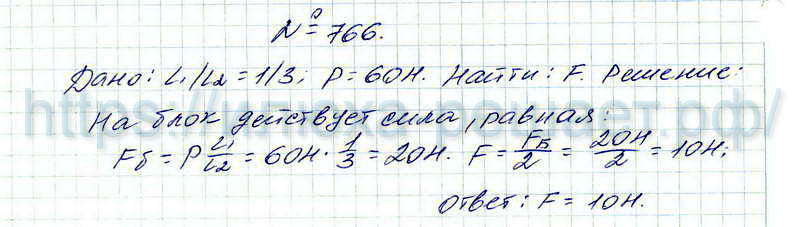 № 766.
Дано: L₁/L₂ = 1/3; P = 60Н. Найти: F. Решение:
На блок действует сила, равная:
Fб = P L₁/L₂ = 60Н · 1/3 = 20Н. F = Fб/2 = 20Н/2 = 10Н;
Ответ: F = 10Н.